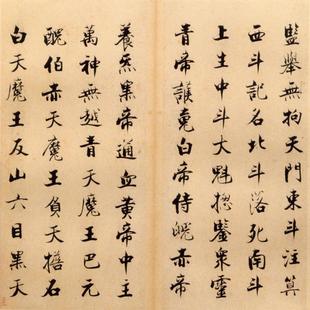 監舉無拘天門東斗注算
西斗記名北斗落死南斗
上生中斗大魁揔鑒眾靈
青帝護魂白帝侍魄赤帝
養炁黑帝通血黃帝中主
萬神無越青天魔王巴元
醜伯赤天魔王負天擔石
白天魔王反山六目黑天